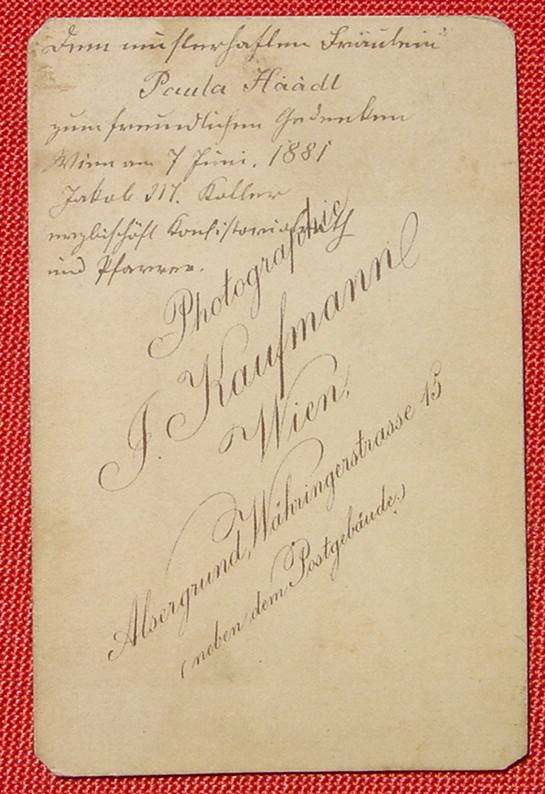 Dem musterhaften Fräulein
Paula Háádl
zum freundlichen Gedenken
Wien am 7 Juni. 1881
Jakob M. Koller
erzbischöfl Konsistorialrath
und Pfarrer.
Photographie
J. Kaufmann
Wien,
Alsergrund, Währingerstrasse 15
(neben dem Postgebäude.)